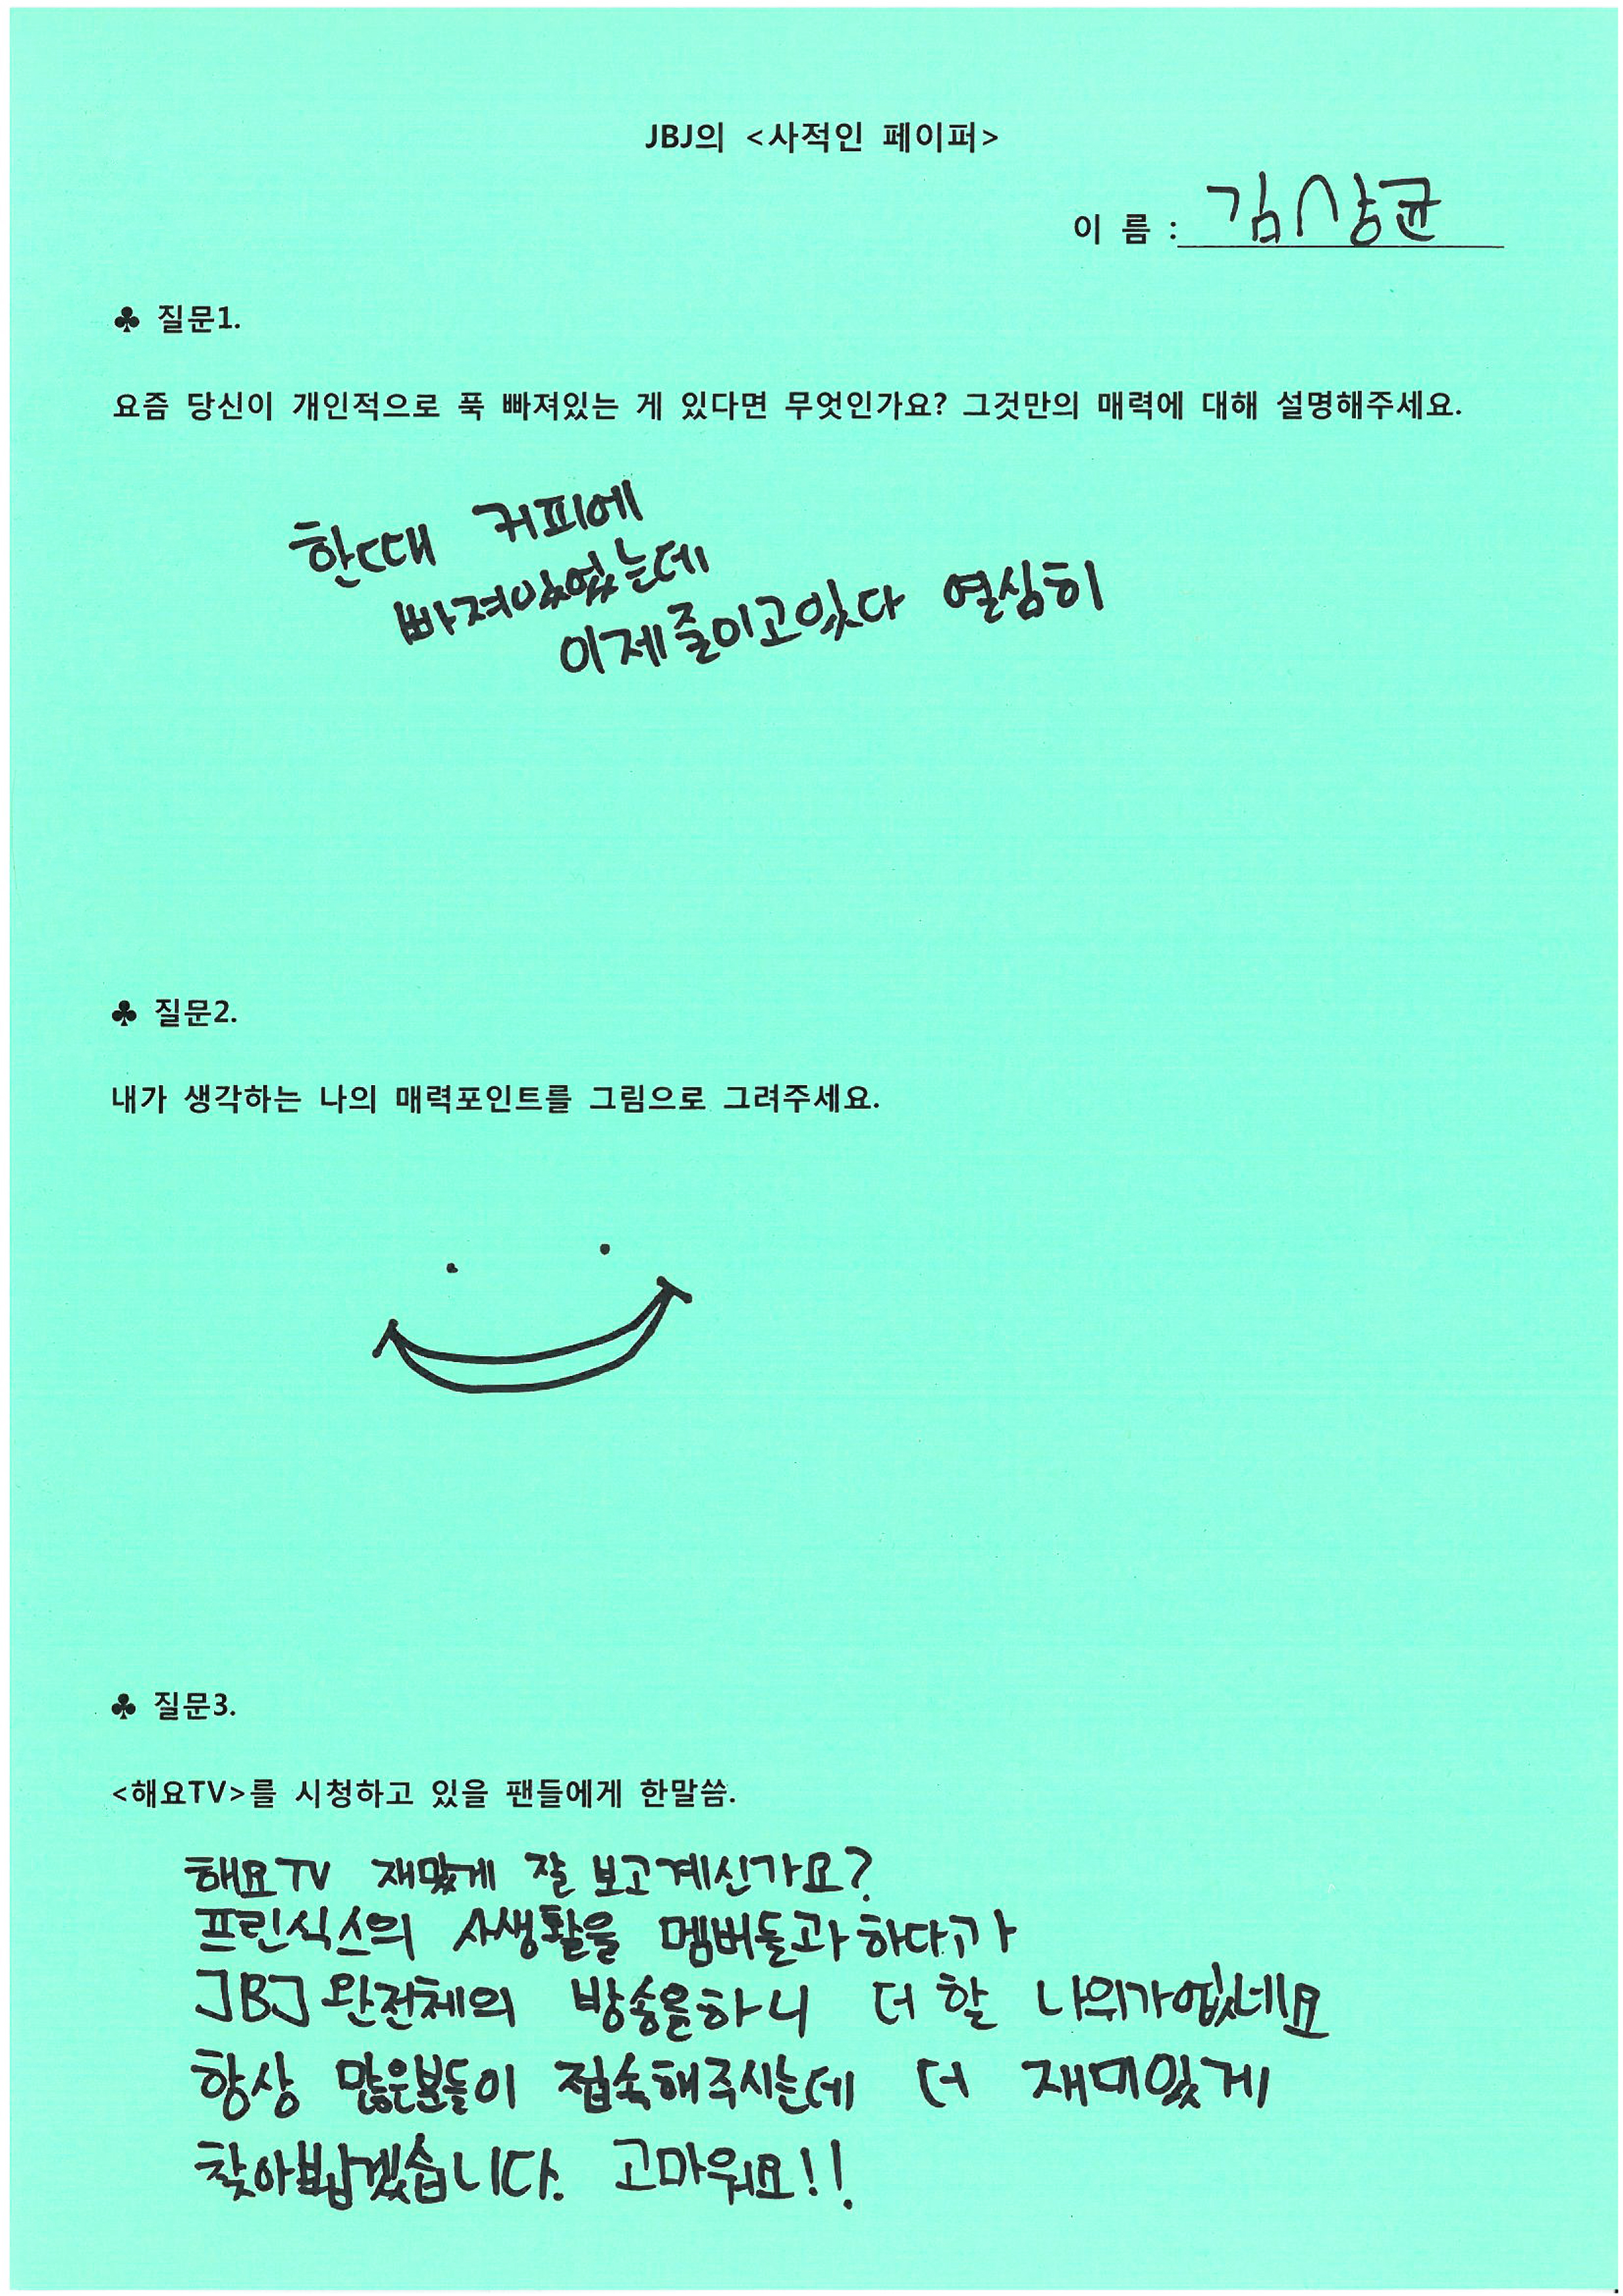 JBJ의 <사적인 페이퍼>
이 름 : 김상균
♣ 질문1.
요즘 당신이 개인적으로 푹 빠져있는 게 있다면 무엇인가요? 그것만의 매력에 대해 설명해주세요.
한때 커피에
빠져있었는데
이제줄이고있다 열심히
♣ 질문2.
내가 생각하는 나의 매력포인트를 그림으로 그려주세요.
♣ 질문3.
<해요TV>를 시청하고 있을 팬들에게 한말씀.
해요TV 재밌게 잘 보고계신가요?
프린식스의 사생활을 멤버들과하다가
JBJ완전체의 방송을하니 더 할 나위가없네요
항상 많은분들이 접속해주시는데 더 재미있게
찾아뵙겠습니다. 고마워요!!